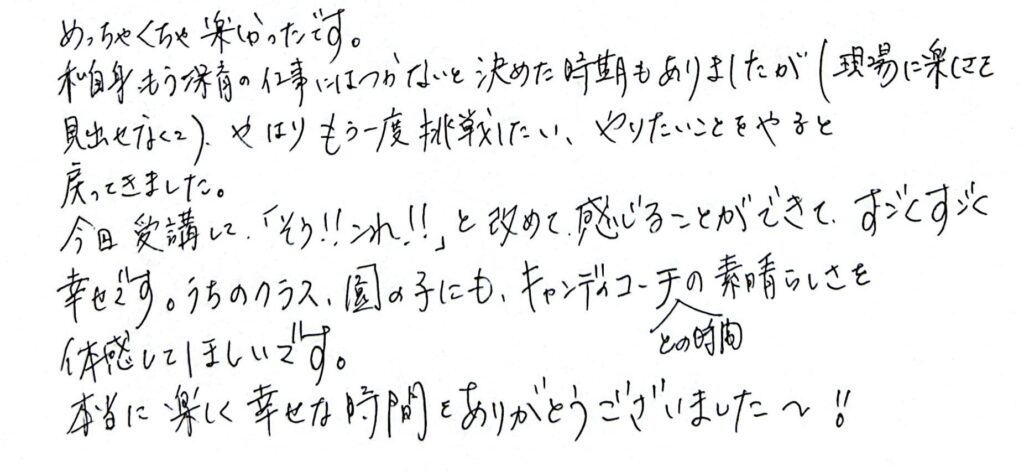 めっちゃくちゃ楽しかったです。
私自身もう保育の仕事にはつかないと決めた時期もありましたが(現場に楽しさを
見出せなくて)、やはりもう一度挑戦したい、やりたいことをやると
戻ってきました。
今日受講して、「そう!!これ!!」と改めて感じることができて、すごくすごく
幸せです。うちのクラス、園の子にも、キャンディコーチの素晴らしさを
との時間
体感してほしいです。
本当に楽しく幸せな時間をありがとうございました〜!!